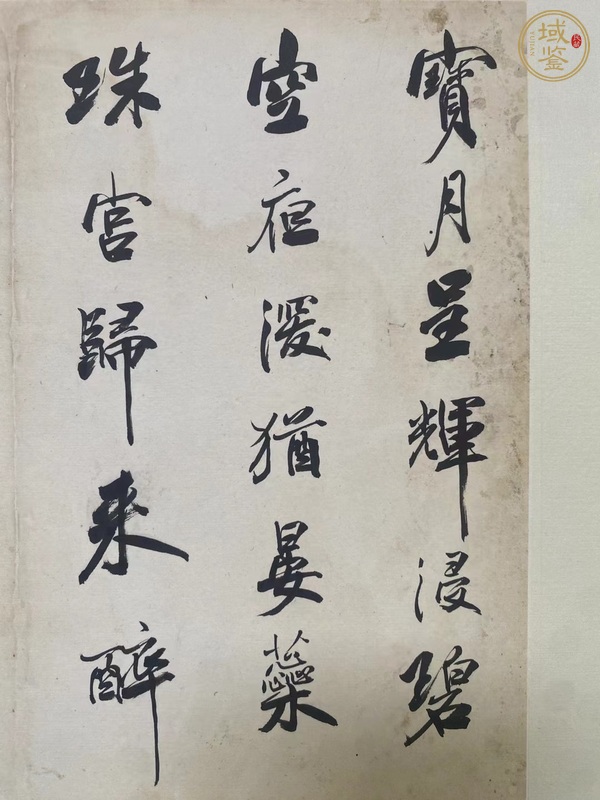 寶月呈輝浸碧
空夜深猶晏蘂
珠宮歸来醉
域鉴